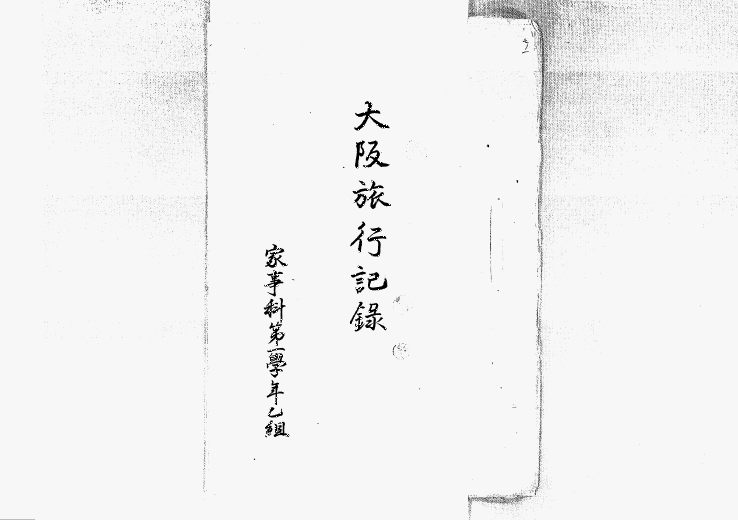 大阪旅行記錄
家事科第一學年乙組